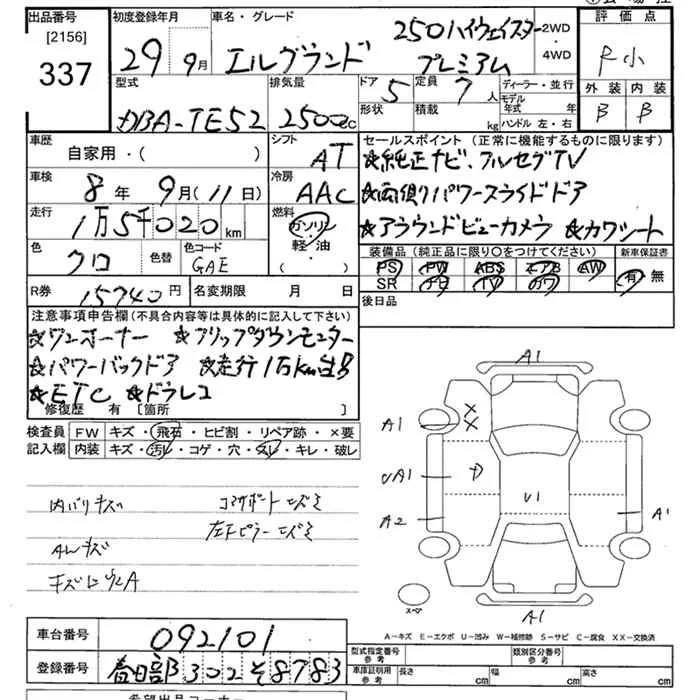 出品番号 [2156] 337
初度登録年月 29 9月
車名・グレード エルグランド 250ハイウェイスター プレミアム
2WD・4WD
評価点
外装 内装
B B
型式 DBA-TE52
排気量 2500cc
ドア 5
形状
定員 7人
積載 kg
ディーラー・並行
モデル年式 年
ハンドル 左・右
車歴 自家用・( )
シフト AT
セールスポイント (正常に機能するものに限ります)
☆純正ナビ、フルセグTV
車検 8年 9月(11日)
冷房 AAC
☆両側パワースライドドア
走行 1万5千020km
燃料 ガソリン 軽・油・( )
☆アラウンドビューカメラ ☆カワシート
色 クロ 色替
色コード GAE
装備品 (純正品に限り○をつけてください) 新車保証書
PS PW ABS エアB AW 有・無
SR ナビ TV カワ
R券 15740円
名変期限 月 日
後日品
注意事項申告欄(不具合内容等は具体的に記入して下さい)
☆ワンオーナー ☆フリップダウンモニター
☆パワーバックドア ☆走行1万km台
☆ETC ☆ドラレコ
修復歴 有 [箇所 ]
検査員記入欄
FW キズ・飛石・ヒビ割・リペア跡・×要
内装 キズ・汚レ・コゲ・穴・スレ・キレ・破レ
内バリキズ
AWキズ
左下ピラー
A1
A1
XX
UA1
U1
A2
A1
A1
スペア
A-キズ E-エクボ U-凹み W-補修跡 S-サビ C-腐食 XX-交換済
車台番号 092101
登録番号 春日部 302 そ8783
型式指定番号 参考
類別区分番号 参考
車庫証明用 参考 長さ cm 幅 cm 高さ cm